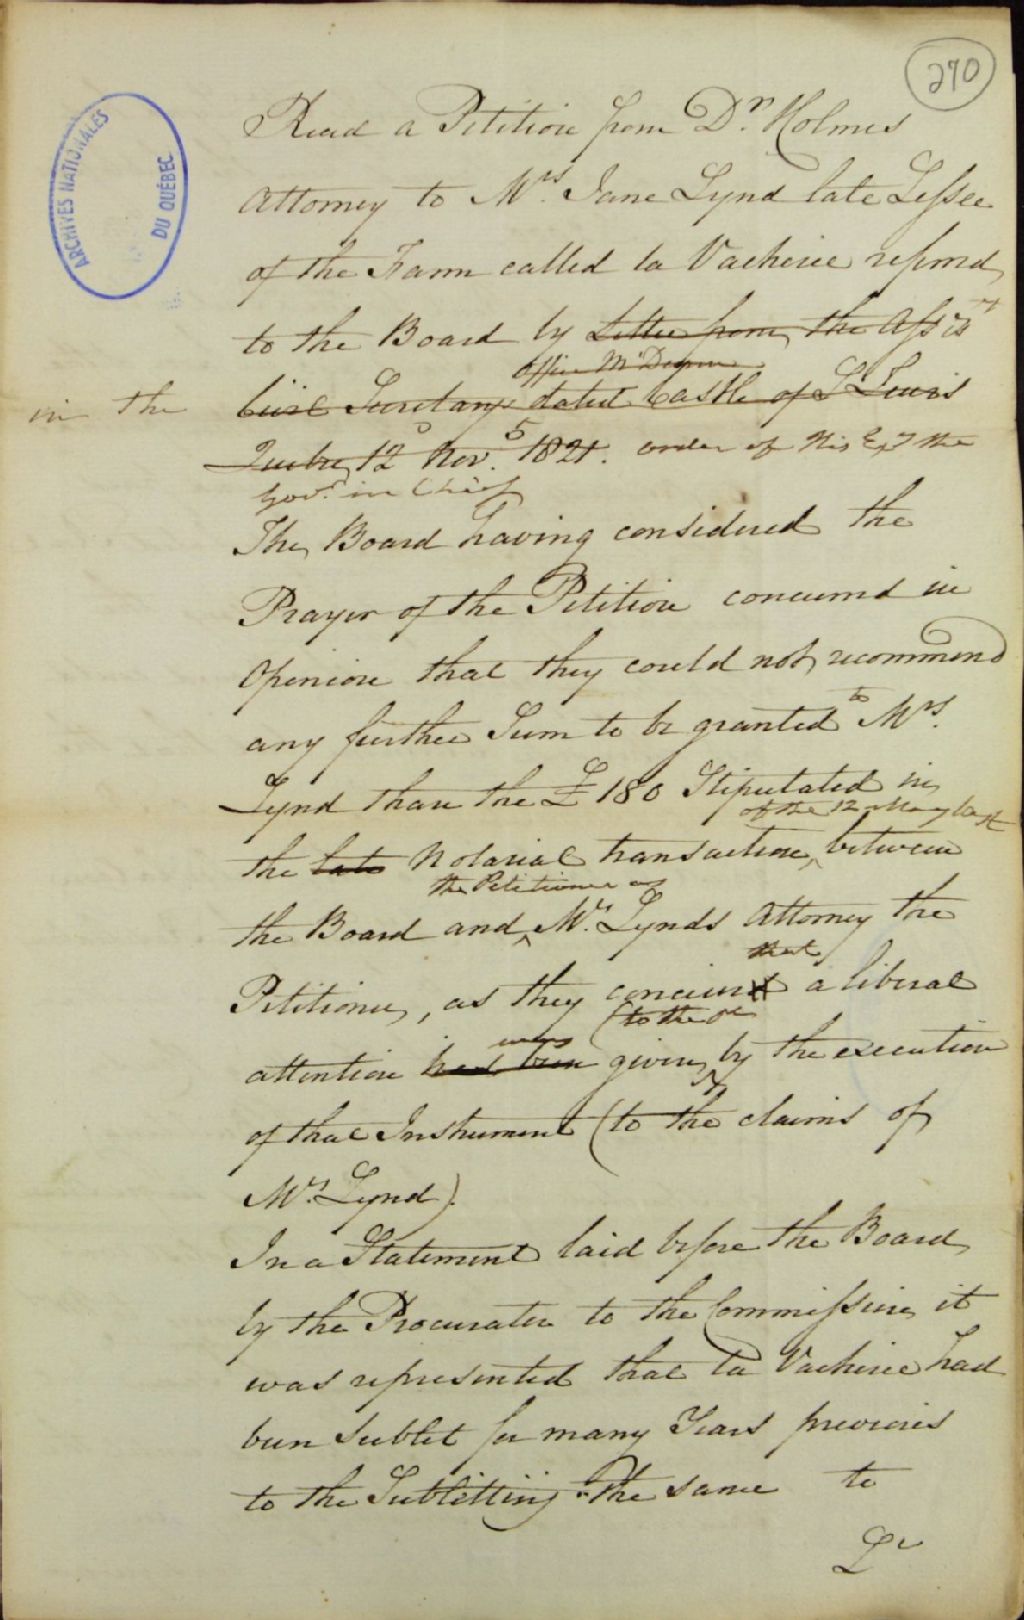 270
ARCHIVES NATIONALES
DU QUÉBEC
Read a Petition from Dr. Holmes
Attorney to Mrs. Jane Lynd late Lessee
of the Farm called la Vacherie referred
to the Board by Letter from the Assist
office
in the Civil Secretary dated Castle of St Lewis
Quebec 12 Nov. 1821. order of His Ex the
Govr. in Chief
The Board having considered the
Prayer of the Petition concurred in
Opinion that they could not recommend
any further Sum to be granted to Mrs.
Lynd than the £180 Stipulated in
of the 12 May last
the late Notarial transaction between
the Petitioner as
the Board and Mrs. Lynds Attorney the
that
Petitioner, as they conceived a liberal
to the
was
attention had been given by the execution
of that Instrument (to the claims of
Mrs. Lynd).
In a Statement laid before the Board
by the Procurator to the Commission it
was represented that la Vacherie had
been sublet for many Years previous
to the Subletting the same to
Dr